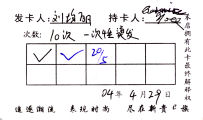 发卡人：刘均丽 持卡人：
次数：10次 一次性烫发
20/5
04年4月29日
逍遥潮流 表现时尚 尽在新贵e族
本店拥有此卡最终解释权